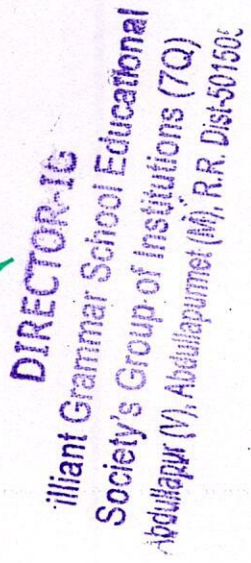 DIRECTOR-IG
illiant Grammar School Educational
Society's Group of Institutions (7Q)
Abdullapur (V), Abdullapurmet (M), R.R. Dist-50150